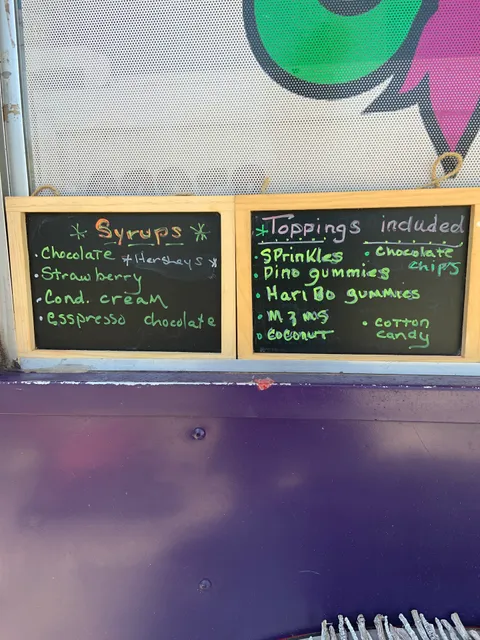 * Syrups *
. Chocolate *Hersheys*
. Strawberry
. Cond. cream
. esspresso chocolate
* Toppings included
. SPrinkles
. Dino gummies
. HariBo gummies
. M3ms
. COCONUT
. Chocolate
chips
. COTTON
candy